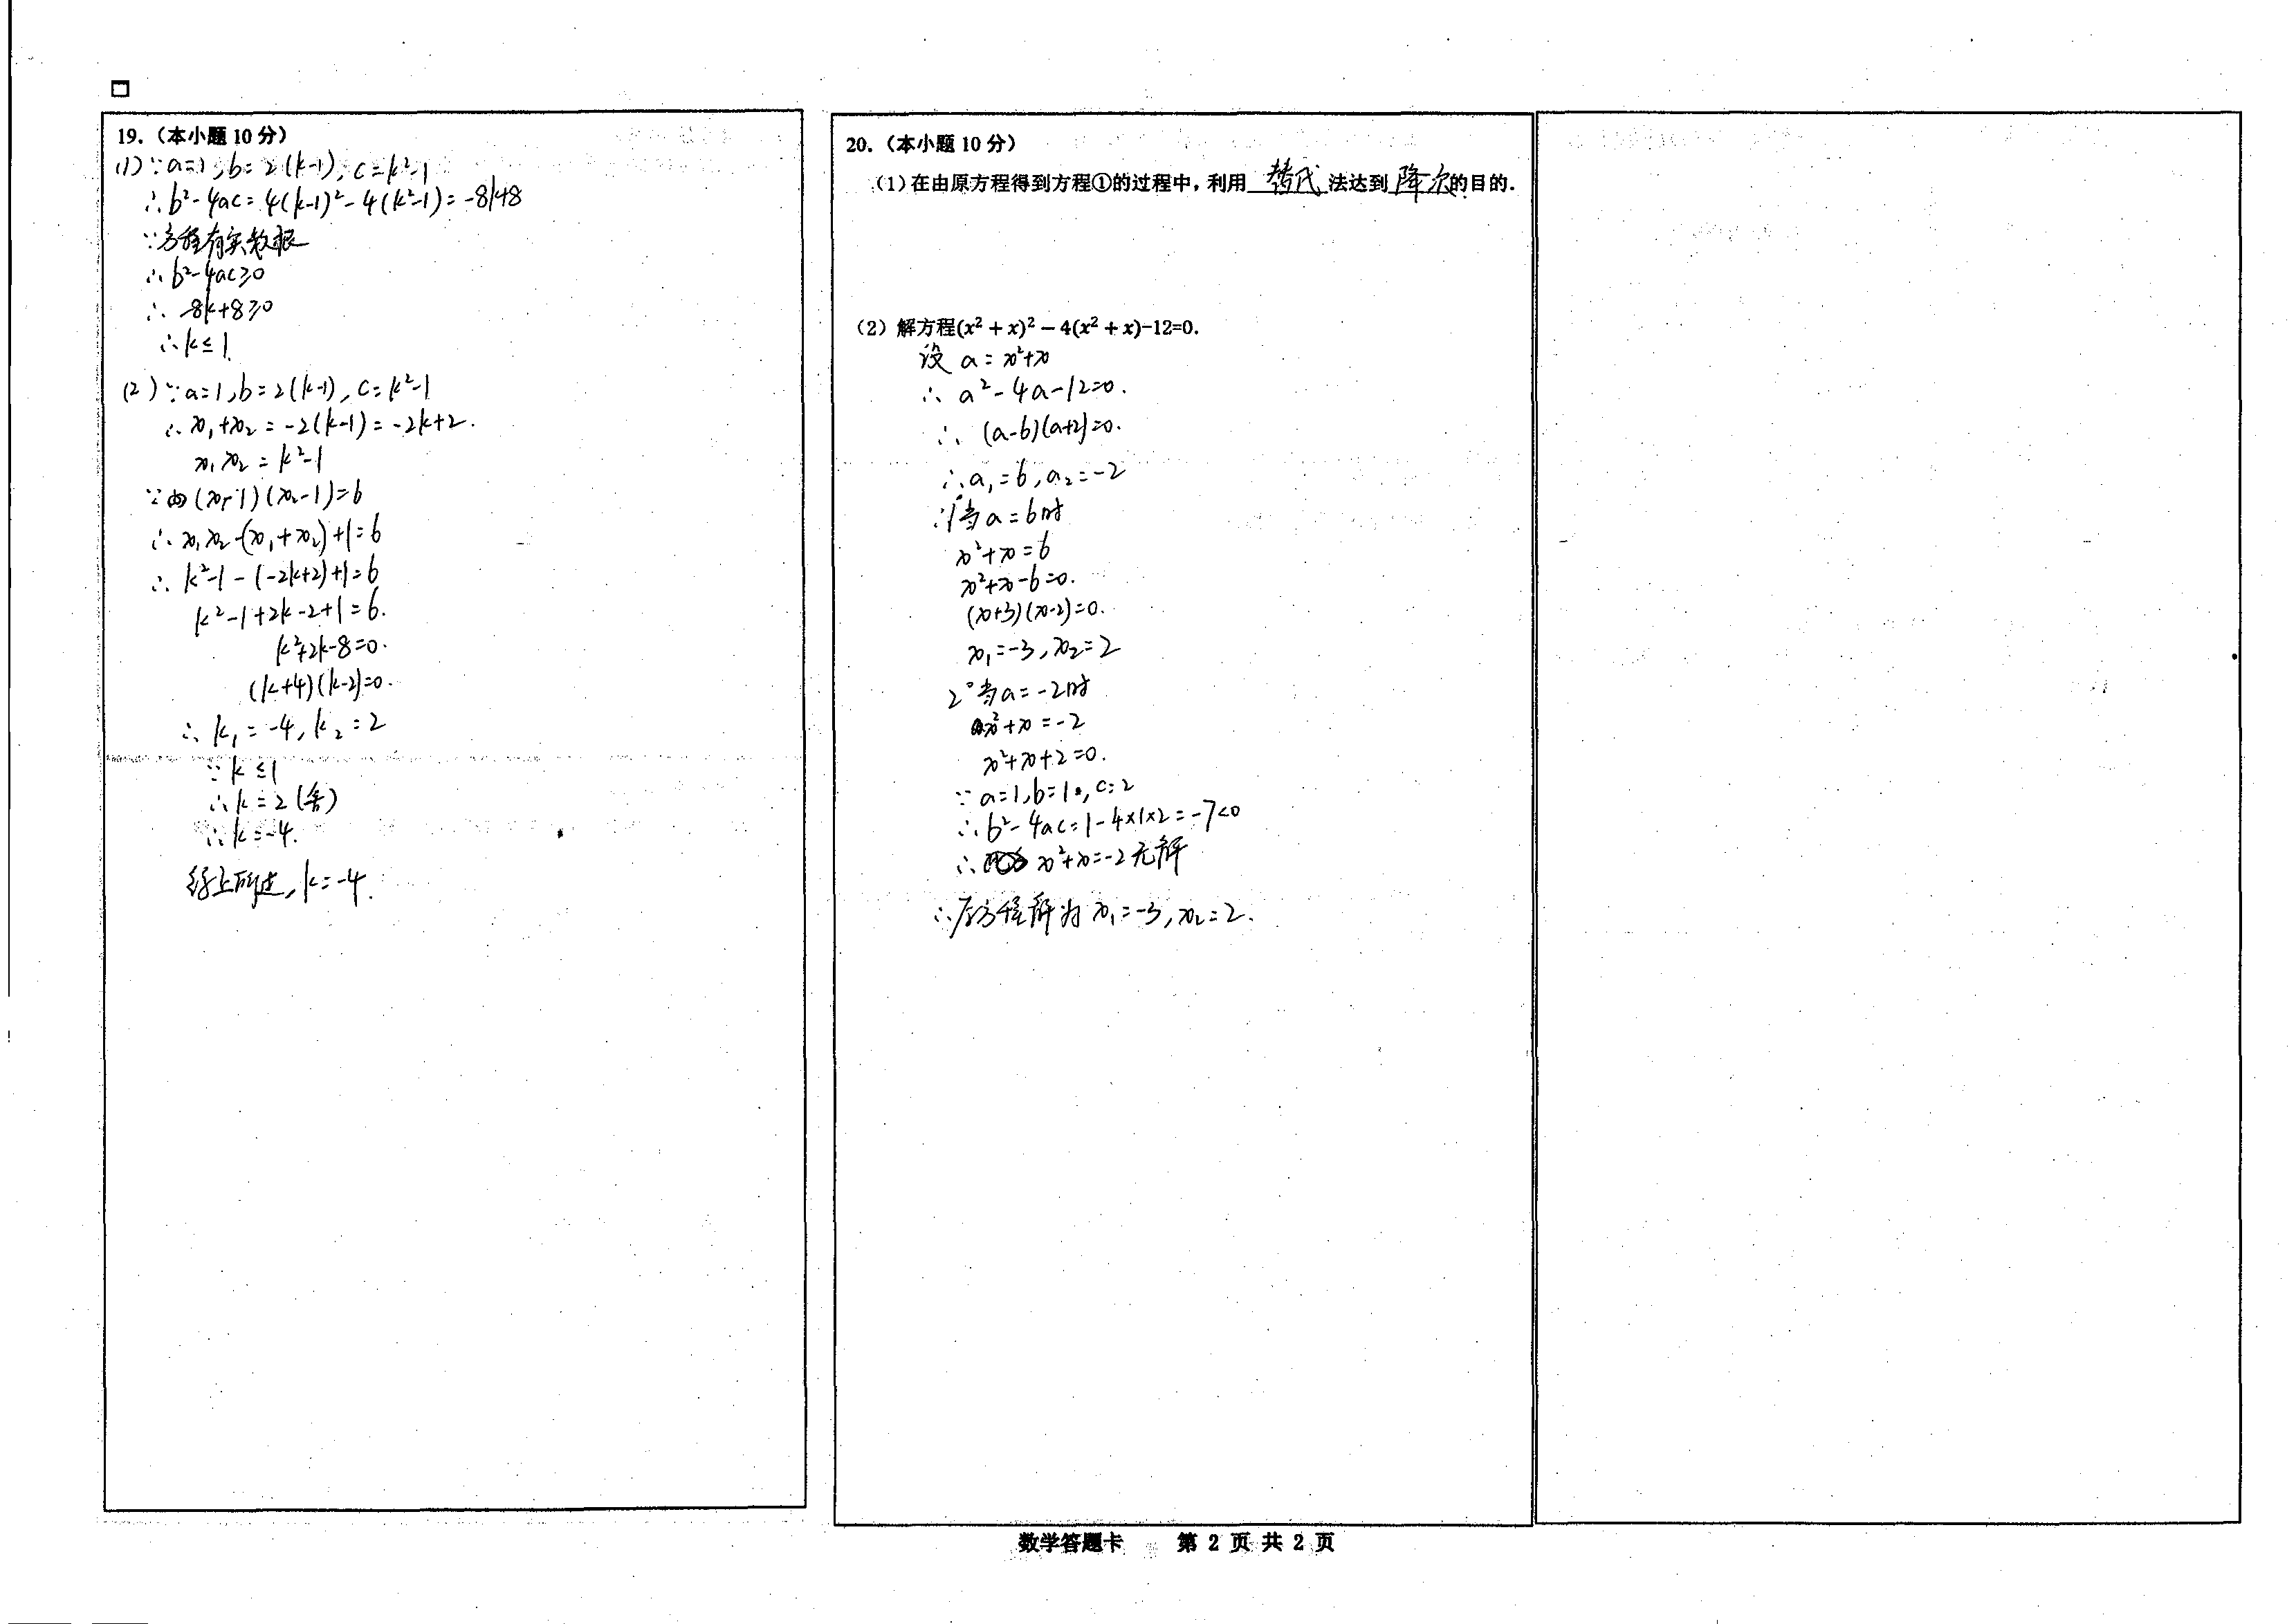 19.（本小题 10 分）
(1) ∵a=1, b=2(k-1), c=k²-1
∴b²-4ac=4(k-1)²-4(k²-1)=-8k+8
∵方程有实数根
∴b²-4ac≥0
∴-8k+8≥0
∴k≤1
(2) ∵a=1, b=2(k-1), c=k²-1
∴x₁+x₂=-2(k-1)=-2k+2.
x₁x₂=k²-1
∵由(x₁-1)(x₂-1)=6
∴x₁x₂-(x₁+x₂)+1=6
∴k²-1-(-2k+2)+1=6
k²-1+2k-2+1=6.
k²+2k-8=0.
(k+4)(k-2)=0.
∴k₁=-4, k₂=2
∵k≤1
∴k=2(舍)
∴k=-4.
综上所述, k=-4.
20.（本小题 10 分）
（1）在由原方程得到方程①的过程中，利用 替代 法达到 降次 的目的.
（2）解方程(x² + x)² − 4(x² + x)−12=0.
设 a=x²+x
∴a²-4a-12=0.
∴(a-6)(a+2)=0.
∴a₁=6, a₂=-2
∴1°当a=6时
x²+x=6
x²+x-6=0.
(x+3)(x-2)=0.
x₁=-3, x₂=2
2°当a=-2时
x²+x=-2
x²+x+2=0.
∵a=1, b=1, c=2
∴b²-4ac=1-4×1×2=-7<0
∴x²+x=-2无解
∴原方程解为x₁=-3, x₂=2.
数学答题卡 第 2 页 共 2 页